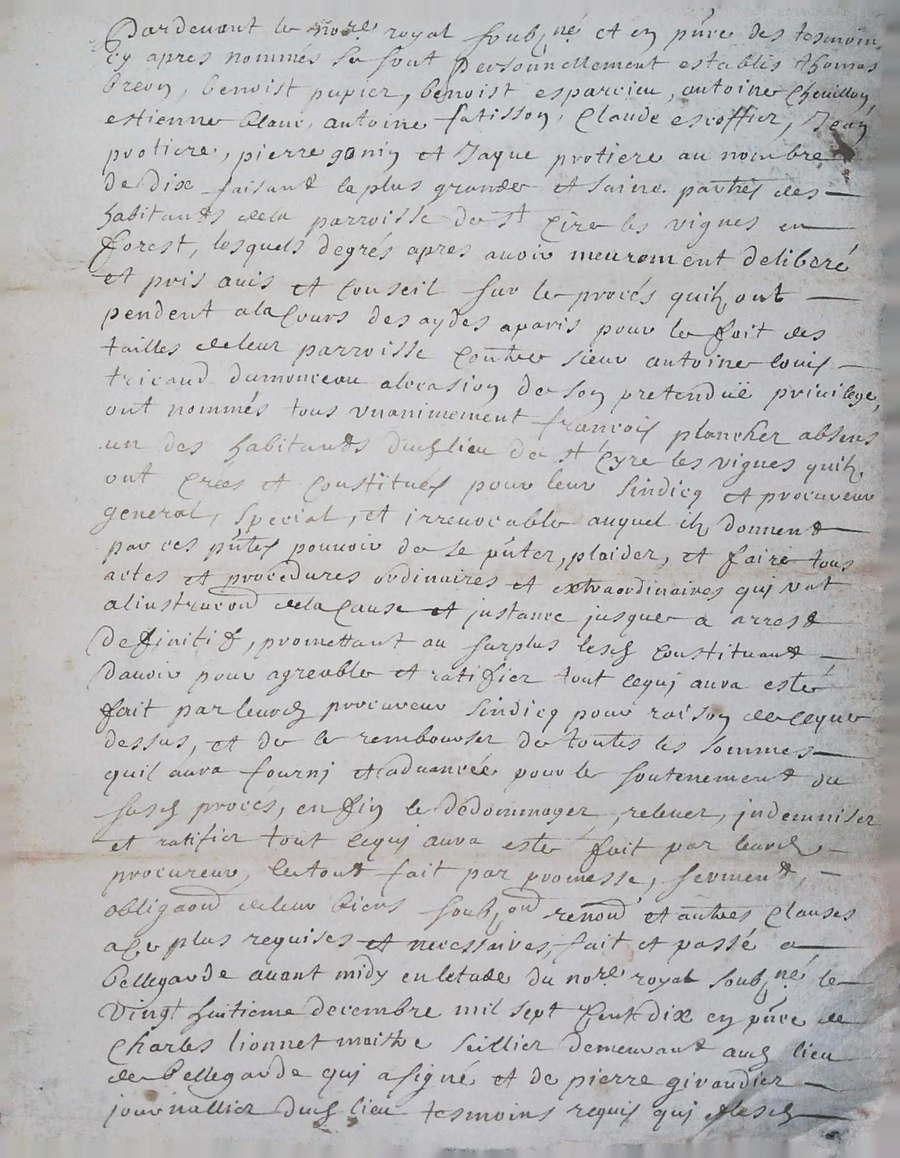 Pardevant le no.re royal soub.né et en p.nce des tesmoins
cy apres nommés se sont personnellement establis thomas
breuy, benoist pupier, benoist esparcieu, antoine Chevillon
estienne blanc, antoine fatisson, Claude escoffier, Jean
protiere, pierre gonin et Jaque protiere au nombre
de dix faisant la plus grande et saine parties des
habitants de la parroisse de st Cire les vignes en
forest, lesquels degrés apres avoir meurement deliberé
et pris avis et Conseil sur le procés quilz ont
pendent a la Cours des aydes a paris pour le fait des
tailles de leur parroisse Contre sieur antoine louis
tricaud dumonceau alocasion de son pretenduë privilege,
ont nommés tous unanimement francois plancher absens
un des habitants dud lieu de st Cyre les vignes quilz
ont Crées et Constitués pour leur sindicq et procureur
general, special, et irrevocable auquel ilz donnent
par ces pntes pouvoir de se pnter, plaider, et faire tous
actes et procedures ordinaires et extraordinaires qui vat
a linstruaond de la Cause et jnstance jusque a arrest
definitif, promettant au surplus lesd Constituant
davoir pour agreable et ratifier tout cequi aura esté
fait par leurd procureur sindicq pour raison de ceque
dessus, et de le rembourser de toutes les sommes
quil aura fourni et advancée pour le soutenement du
susd procés, en fin le dedommager, relever, jndemniser
et ratifier tout cequi aura esté fait par leurd
procureur, le tout fait par promesse, serment,
obligaond de leur biens soub.ond renond et autres Clauses
a ce plus requises et necessaires, fait et passé a
bellegarde avant midy en letude du no.re royal soub.né le
vingt huitieme decembre mil sept Cent dix en p.nce de
Charles lionnet maitre sellier demeurant aud lieu
de bellegarde qui a signé et de pierre giraudier
journallier dud lieu tesmoins requis qui lesd